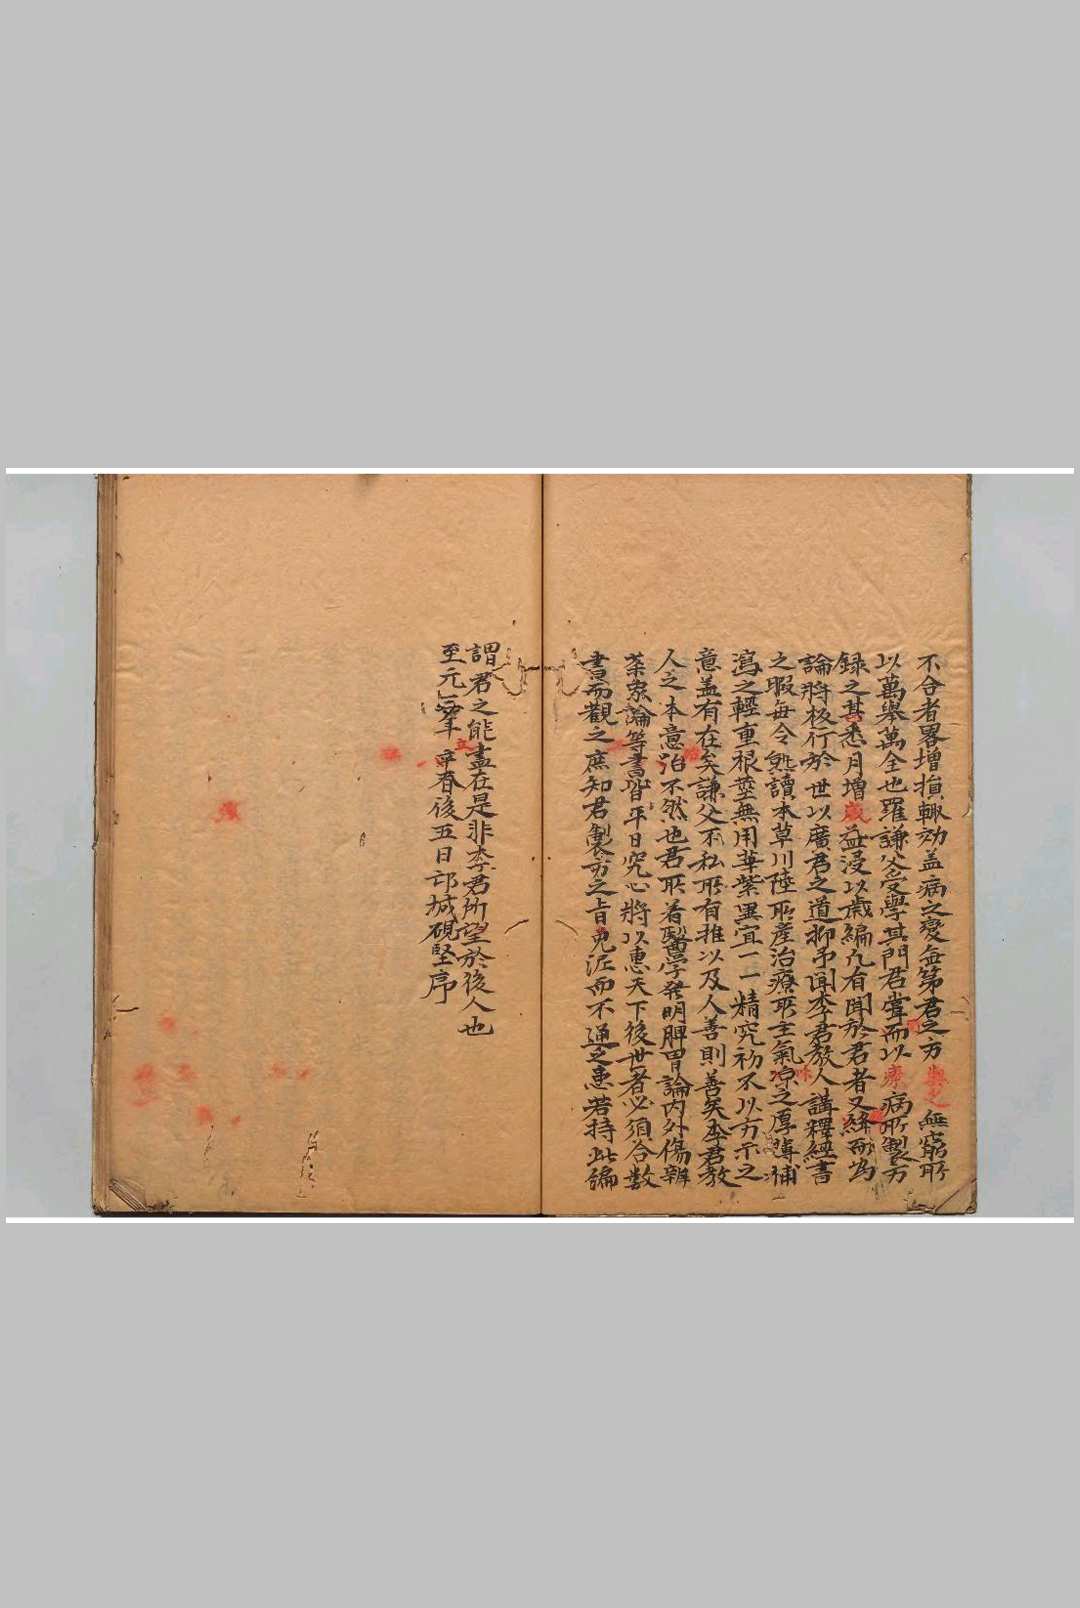 不合者畧增損輙効盖病之變無窮君之方與之無窮所
以萬舉萬全也羅謙父受學其門君嘗而以療病所製方
録之甚悉月増歳益浸以成編凡有聞於君者又緝而為
論將板行於世以廣君之道抑予聞李君教人講釋經書
之暇每令熟讀本草川陸所産治療所主氣味之厚薄補
瀉之輕重根莖無用華紫異宜一一精究初不以方示之
意盖有在矣謙父不私所有推以及人善則善矣李君教
人之本意殆不然也君所著醫學發明脾胃論內外傷辨
藥象論等書皆平日究心將以惠天下後世者必須合數
書而觀之庶知君製方之旨免泥而不通之患若持此編
謂君之能盡在是非李君所望於後人也
至元 年立春後五日邙城硯堅序